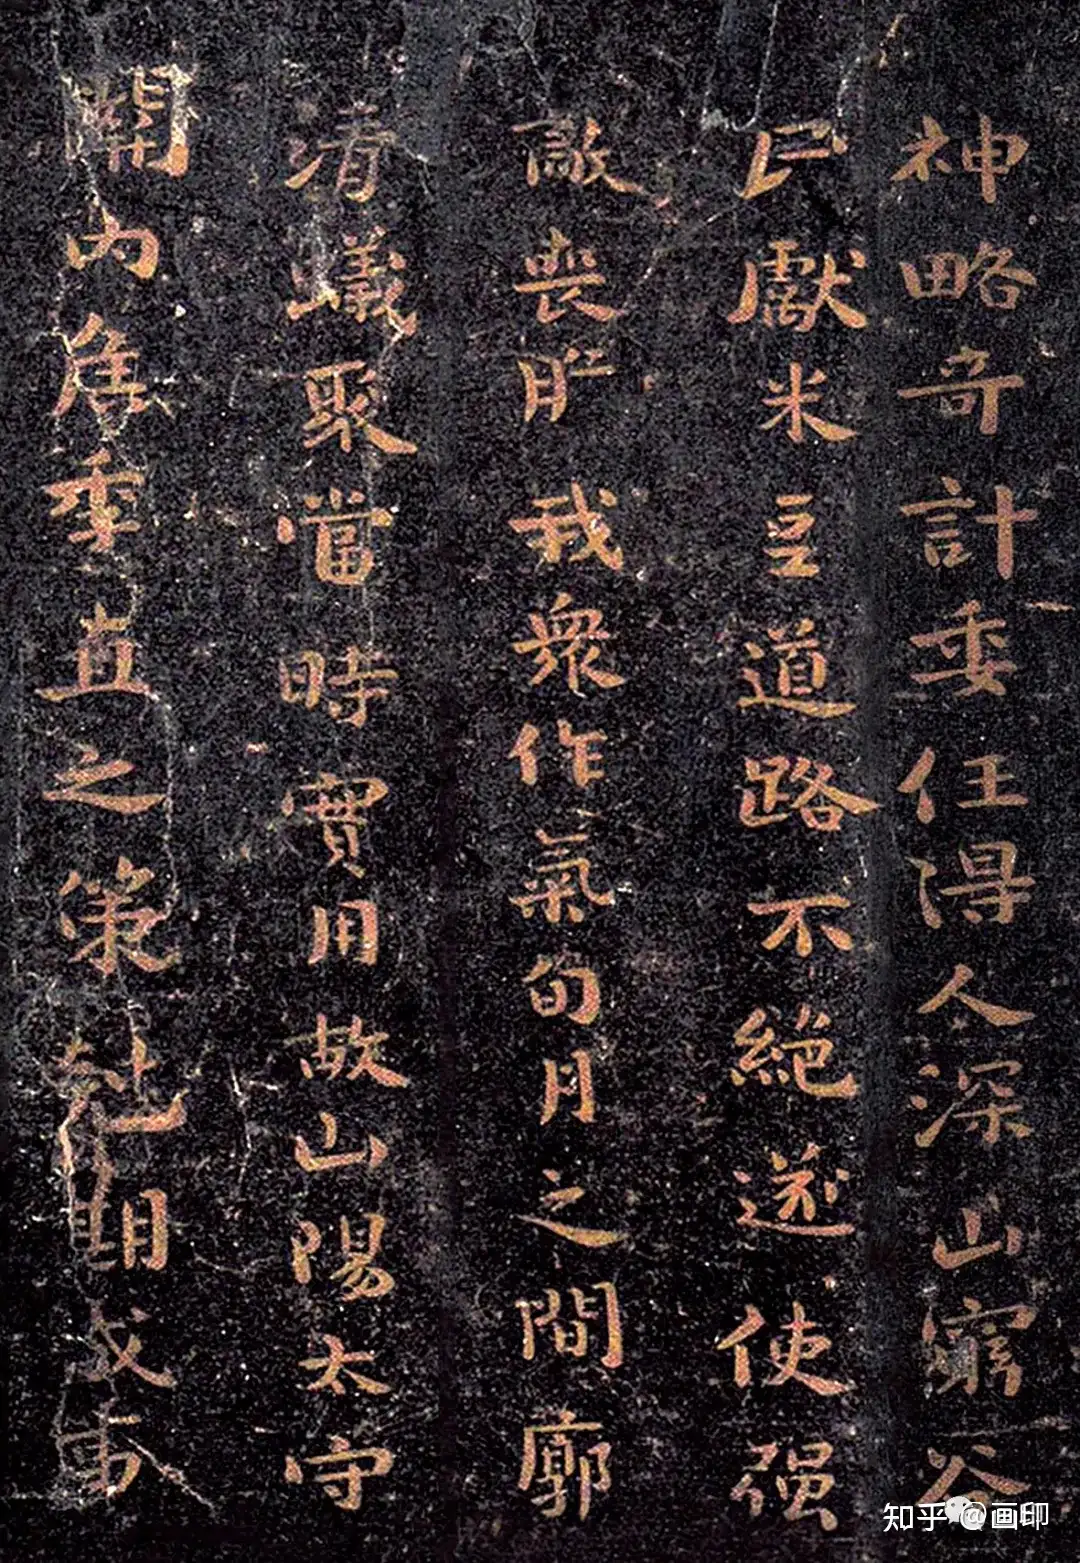 神略奇計委任得人深山窮谷
民獻米豆道路不絕遂使强
敵喪膽我衆作氣旬月之間廓
清蟻聚當時實用故山陽太守
關內侯季直之策剋期成事
知乎 @画印